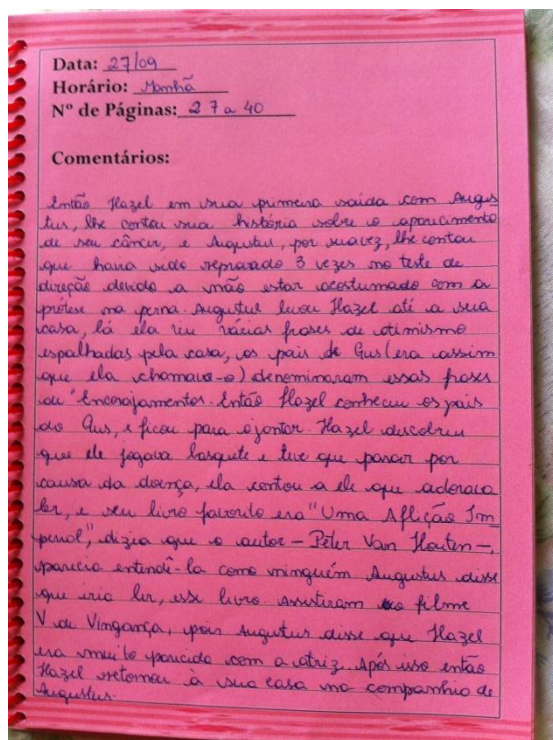 Data: 27/09
Horário: Manhã
Nº de Páginas: 27 a 40
Comentários:
Então Hazel em sua primeira saída com Augus
tus, lhe contou sua história sobre o aparecimento
de seu câncer, e Augustus, por sua vez, lhe contou
que havia sido reprovado 3 vezes no teste de
direção devido a não estar acostumado com a
prótese na perna. Augustus levou Hazel até a sua
casa, lá ela viu várias frases de otimismo
espalhadas pela casa, os pais de Gus (era assim
que ela chamava-o) denominaram essas frases
de "Encorajamentos. Então Hazel conheceu os pais
do Gus, e ficou para o jantar. Hazel descobriu
que ele jogava basquete e teve que parar por
causa da doença, ela contou a ele que adorava
ler, e seu livro favorito era "Uma Aflição Im
perial", dizia que o autor – Peter Van Houten –,
parecia entendê-la como ninguém Augustus disse
que iria ler, esse livro assistiram ao filme
V de Vingança, pois Augustus disse que Hazel
era muito parecida com a atriz. Após isso então
Hazel retornou à sua casa na companhia de
Augustus.